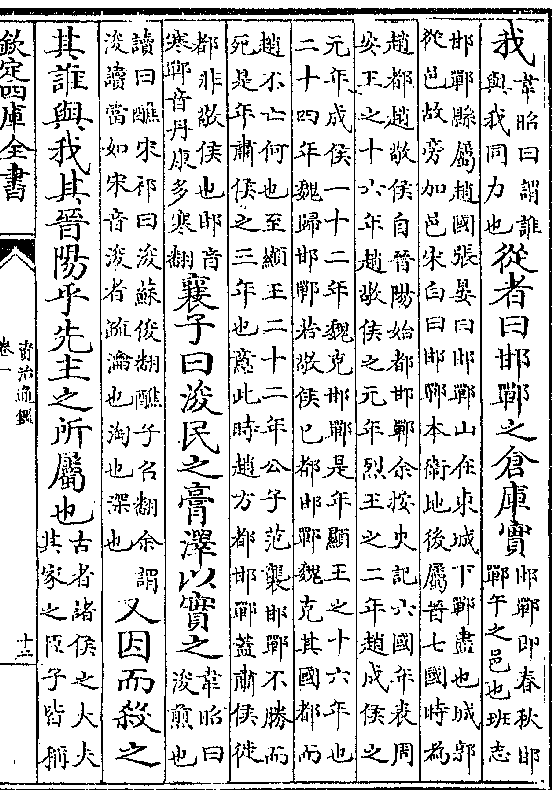 我
韋昭曰謂誰
與我同力也
從者曰邯鄲之倉庫實
邯鄲即春秋邯
鄲午之邑也班志
邯鄲縣屬趙國張晏曰邯鄲山在東城下鄲盡也城郭
從邑故旁加邑宋白曰邯鄲本衛地後屬晉七國時為
趙都趙敬侯自晉陽始都邯鄲余按史記六國年表周
安王之十六年趙敬侯之元年烈王之二年趙成侯之
元年成侯一十二年魏克邯鄲是年顯王之十六年也
二十四年魏歸邯鄲若敬侯已都邯鄲魏克其國都而
趙不亡何也至顯王二十二年公子范襲邯鄲不勝而
死是年肅侯之三年也意此時趙方都邯鄲蓋肅侯徙
都非敬侯也邯音
寒鄲音丹康多寒翻
襄子曰浚民之膏澤以實之
韋昭曰
浚煎也
讀曰醮宋祁曰浚蘇俊翻醮子召翻余謂
浚讀當如宋音浚者疏瀹也淘也深也
又因而殺之
其誰與我其晉陽乎先主之所屬也
古者諸侯之大夫
其家之臣子皆稱
欽定四庫全書
資治通鑑
卷一
十三